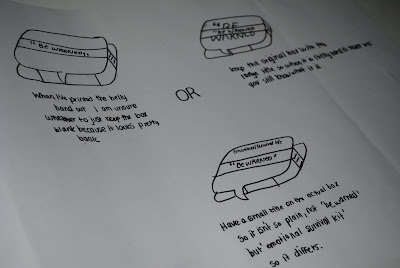 "BE WARNED"
When I've printed the belly
band out I am unsure
whether to just keep the box
blank because it looks pretty
basic
OR
"BE
"BE WARNED"
WARNED
keep the original box with the
large title so when the belly band is taken off
you still know what it is.
Emotional Survival Kit
"BE WARNED"
Have a small title on the actual box
so it isn't so plain, not 'be warned'
but 'emotional survival kit'
so it differs.